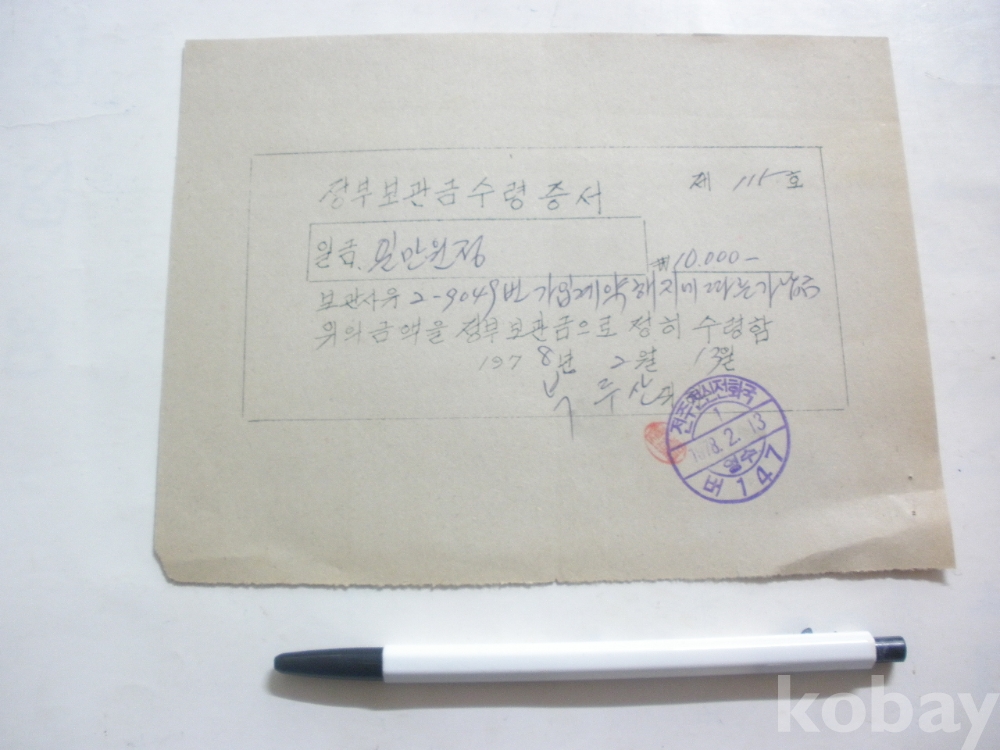 정부보관금수령증서
제 115호
일금 일만원정
₩10.000-
보관사유 2-9049번 가입계약해지에따른가납금
위의금액을 정부보관금으로 정히 수령함
1978년 2월 13일
박 두산
전주전신전화국
1
1978.2.13
일수
또 147
kobay